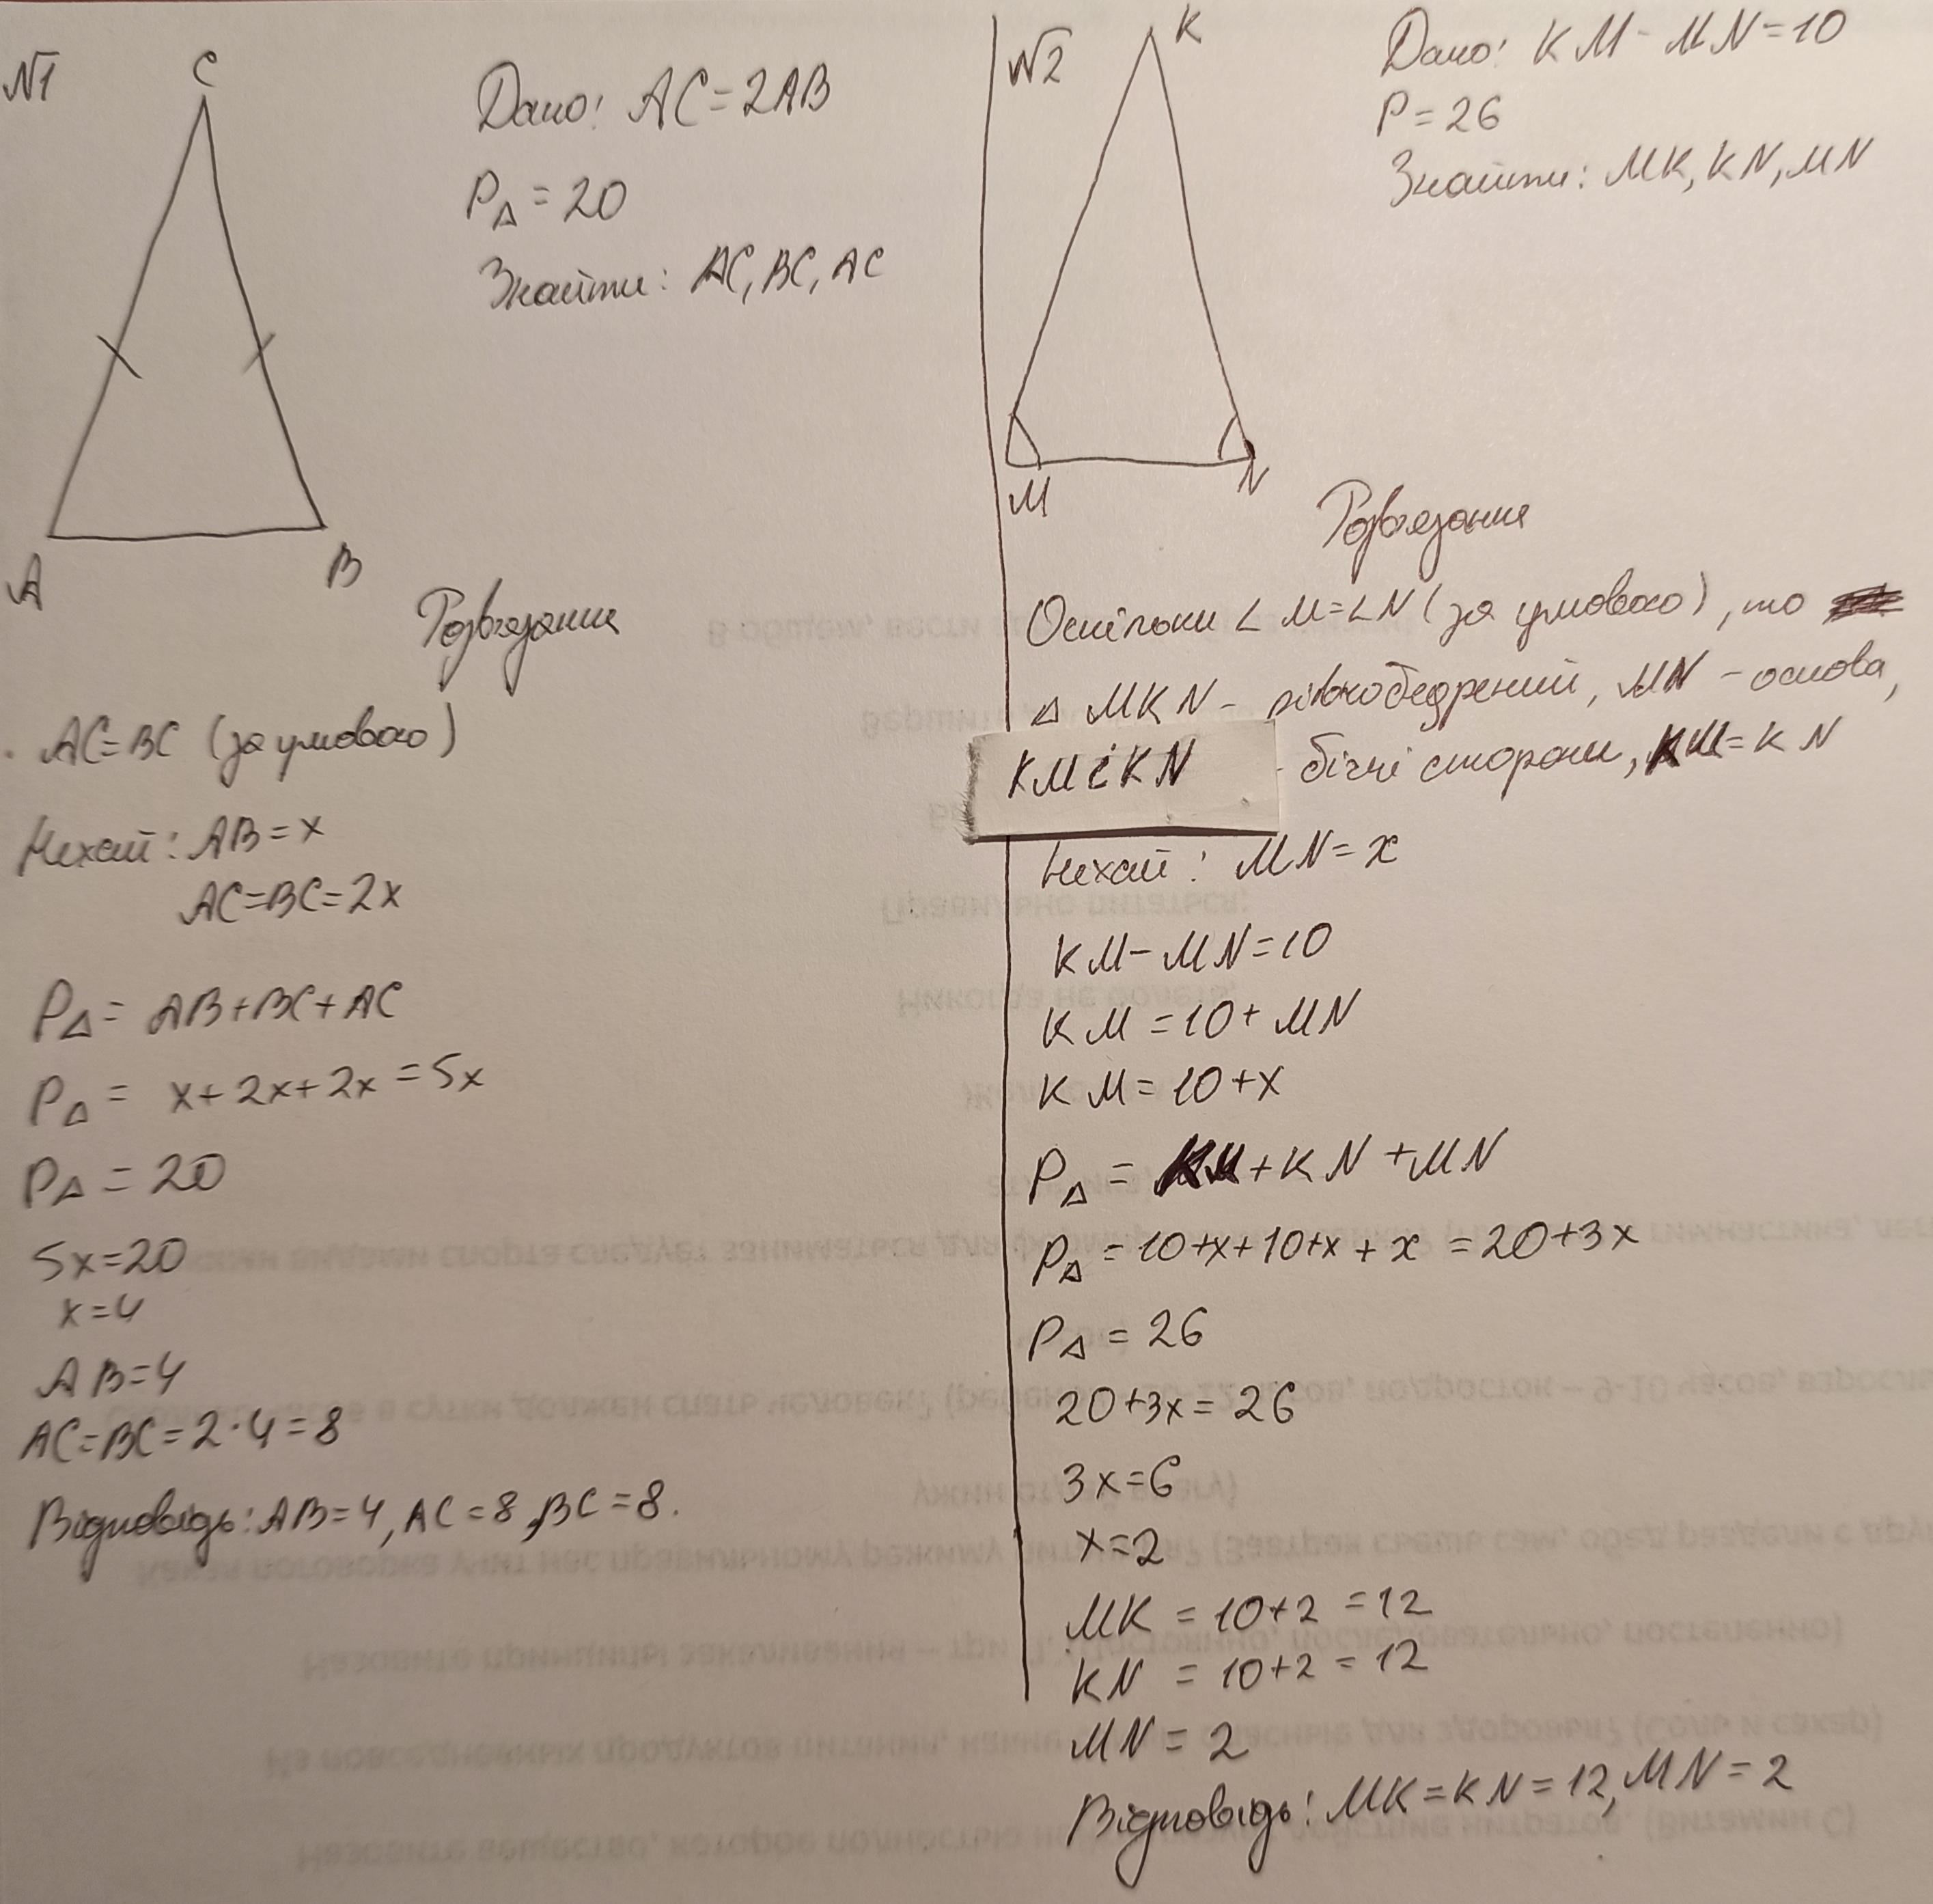 №1
C
A
B
Дано: AC=2AB
P△=20
Знайти: AC, BC, AC
Розв'язання
AC=BC (за умовою)
Нехай: AB=x
AC=BC=2x
P△= AB+BC+AC
P△= x+2x+2x=5x
P△=20
5x=20
x=4
AB=4
AC=BC=2·4=8
Відповідь: AB=4, AC=8, BC=8.
№2
K
M
N
Дано: KM-MN=10
P=26
Знайти: MK, KN, MN
Розв'язання
Оскільки ∠M=∠N (за умовою), то
△ MKN - рівнобедрений, MN - основа,
KM і KN - бічні сторони, KM=KN
Нехай: MN=x
KM-MN=10
KM=10+MN
KM=10+x
P△=KM+KN+MN
P△=10+x+10+x+x=20+3x
P△=26
20+3x=26
3x=6
x=2
MK=10+2=12
KN=10+2=12
MN=2
Відповідь: MK=KN=12, MN=2